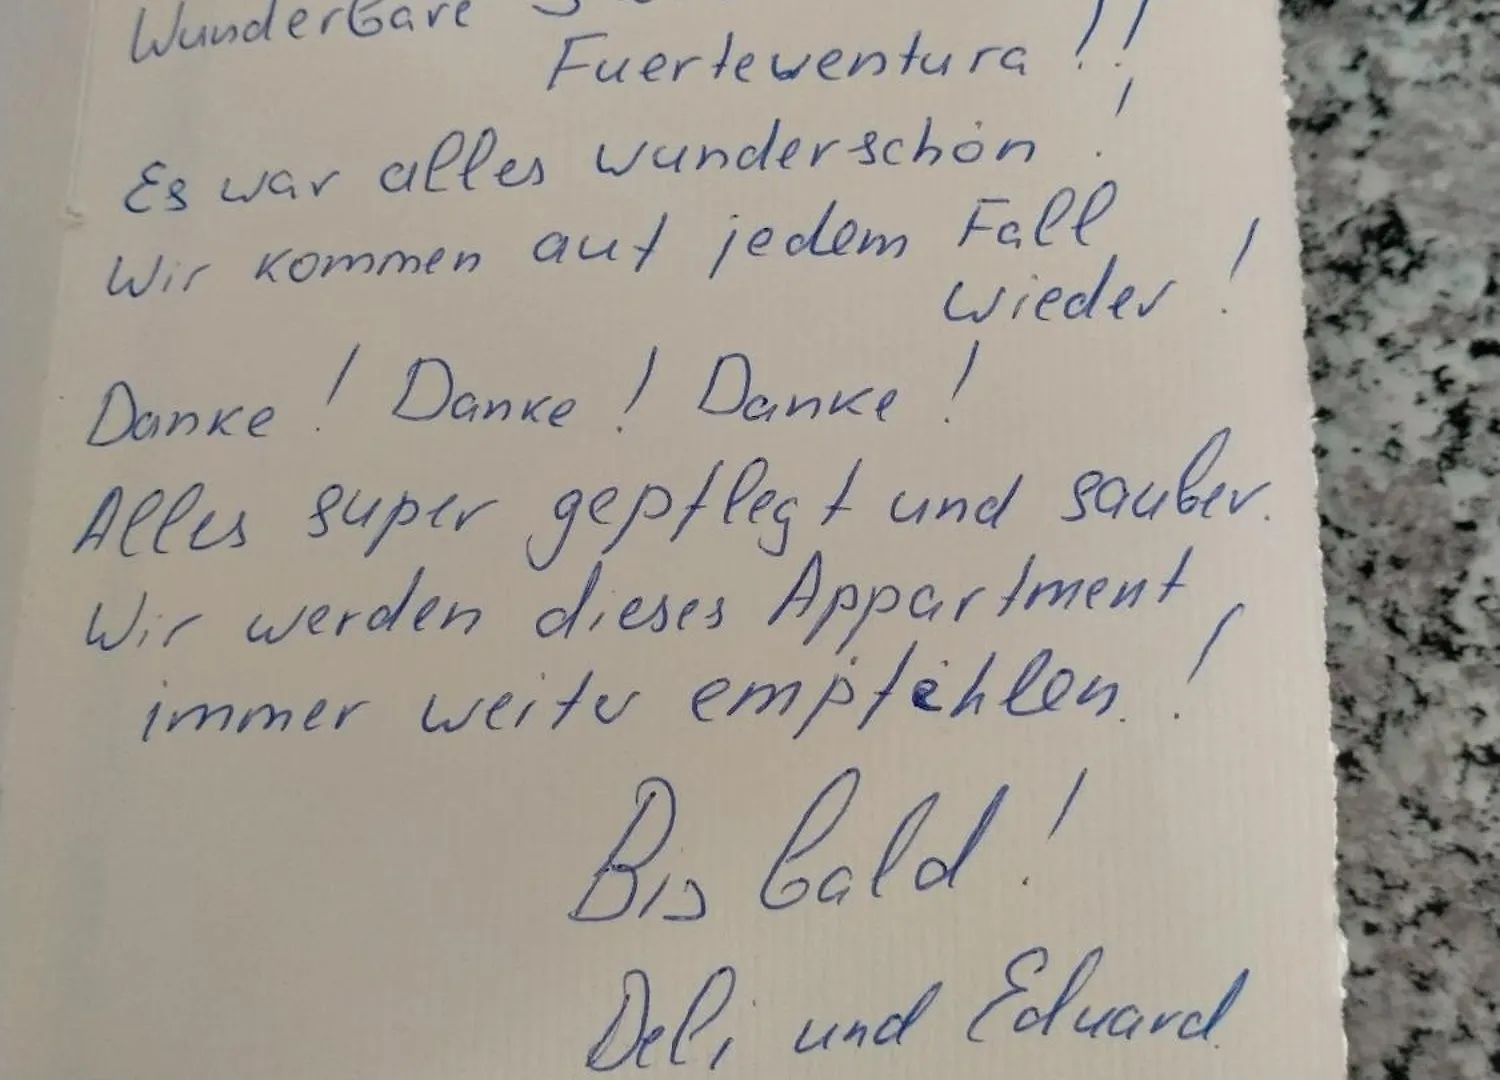 Wunderbare
Fuerteventura !!
Es war alles wunderschön !
Wir kommen auf jedem Fall
wieder !
Danke ! Danke ! Danke !
Alles super gepflegt und sauber.
Wir werden dieses Appartment
immer weiter empfehlen. !
Bis bald !
Deli und Eduard